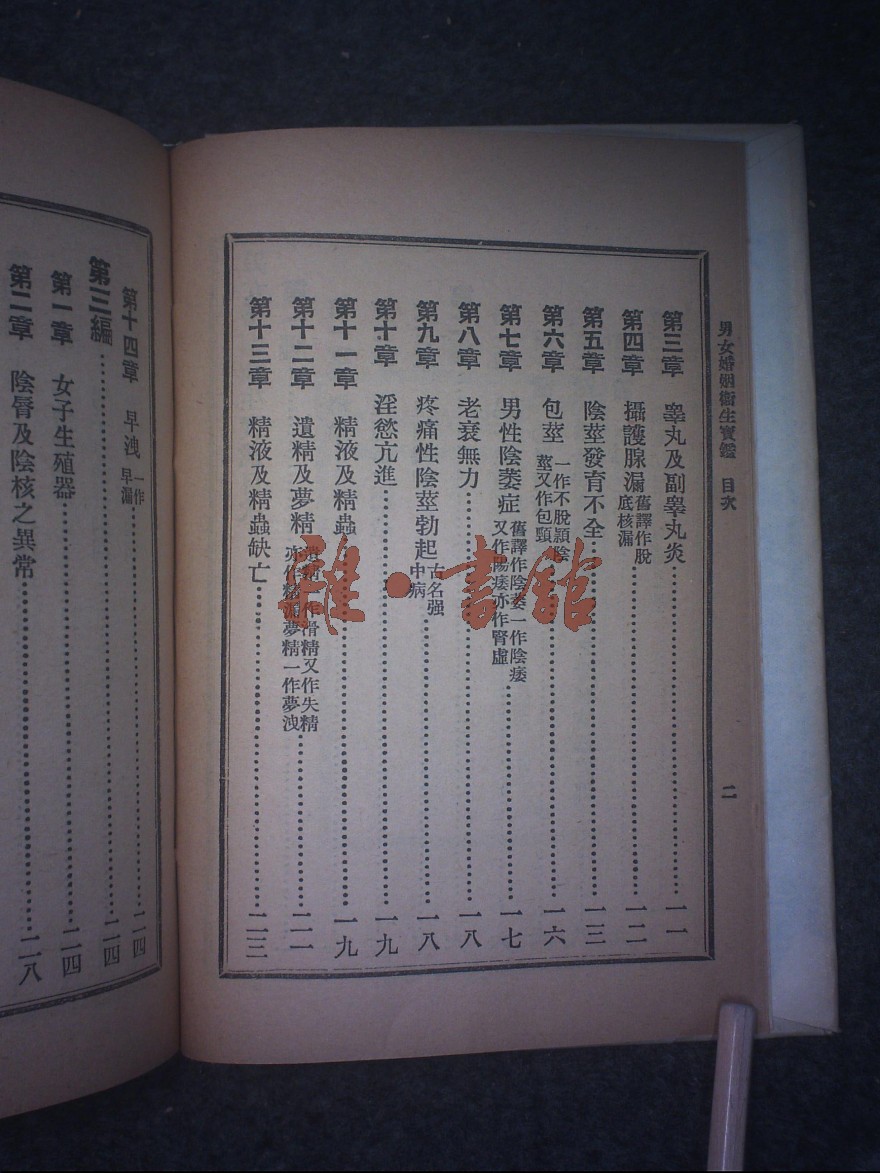 男女婚姻衞生寶鑑　目次
二
第三章　睾丸及副睾丸炎……一一
第四章　攝護腺漏舊譯作脫底核漏……一二
第五章　陰莖發育不全……一三
第六章　包莖一作不脫顥陰莖又作包頸……一六
第七章　男性陰萎症舊譯作陰萎一作陰痿又作陽痿亦作腎虛……一七
第八章　老衰無力……一八
第九章　疼痛性陰莖勃起古名强中病……一八
第十章　淫慾亢進……一九
第十一章　精液及精蟲……一九
第十二章　遺精及夢精滑精一作滑精又作失精亦作精漏夢精一作夢洩……二一
第十三章　精液及精蟲缺亡……二三
第十四章　早洩一作早漏……二四
第三編……二四
第一章　女子生殖器……二四
第二章　陰脣及陰核之異常……二八
雅·書館